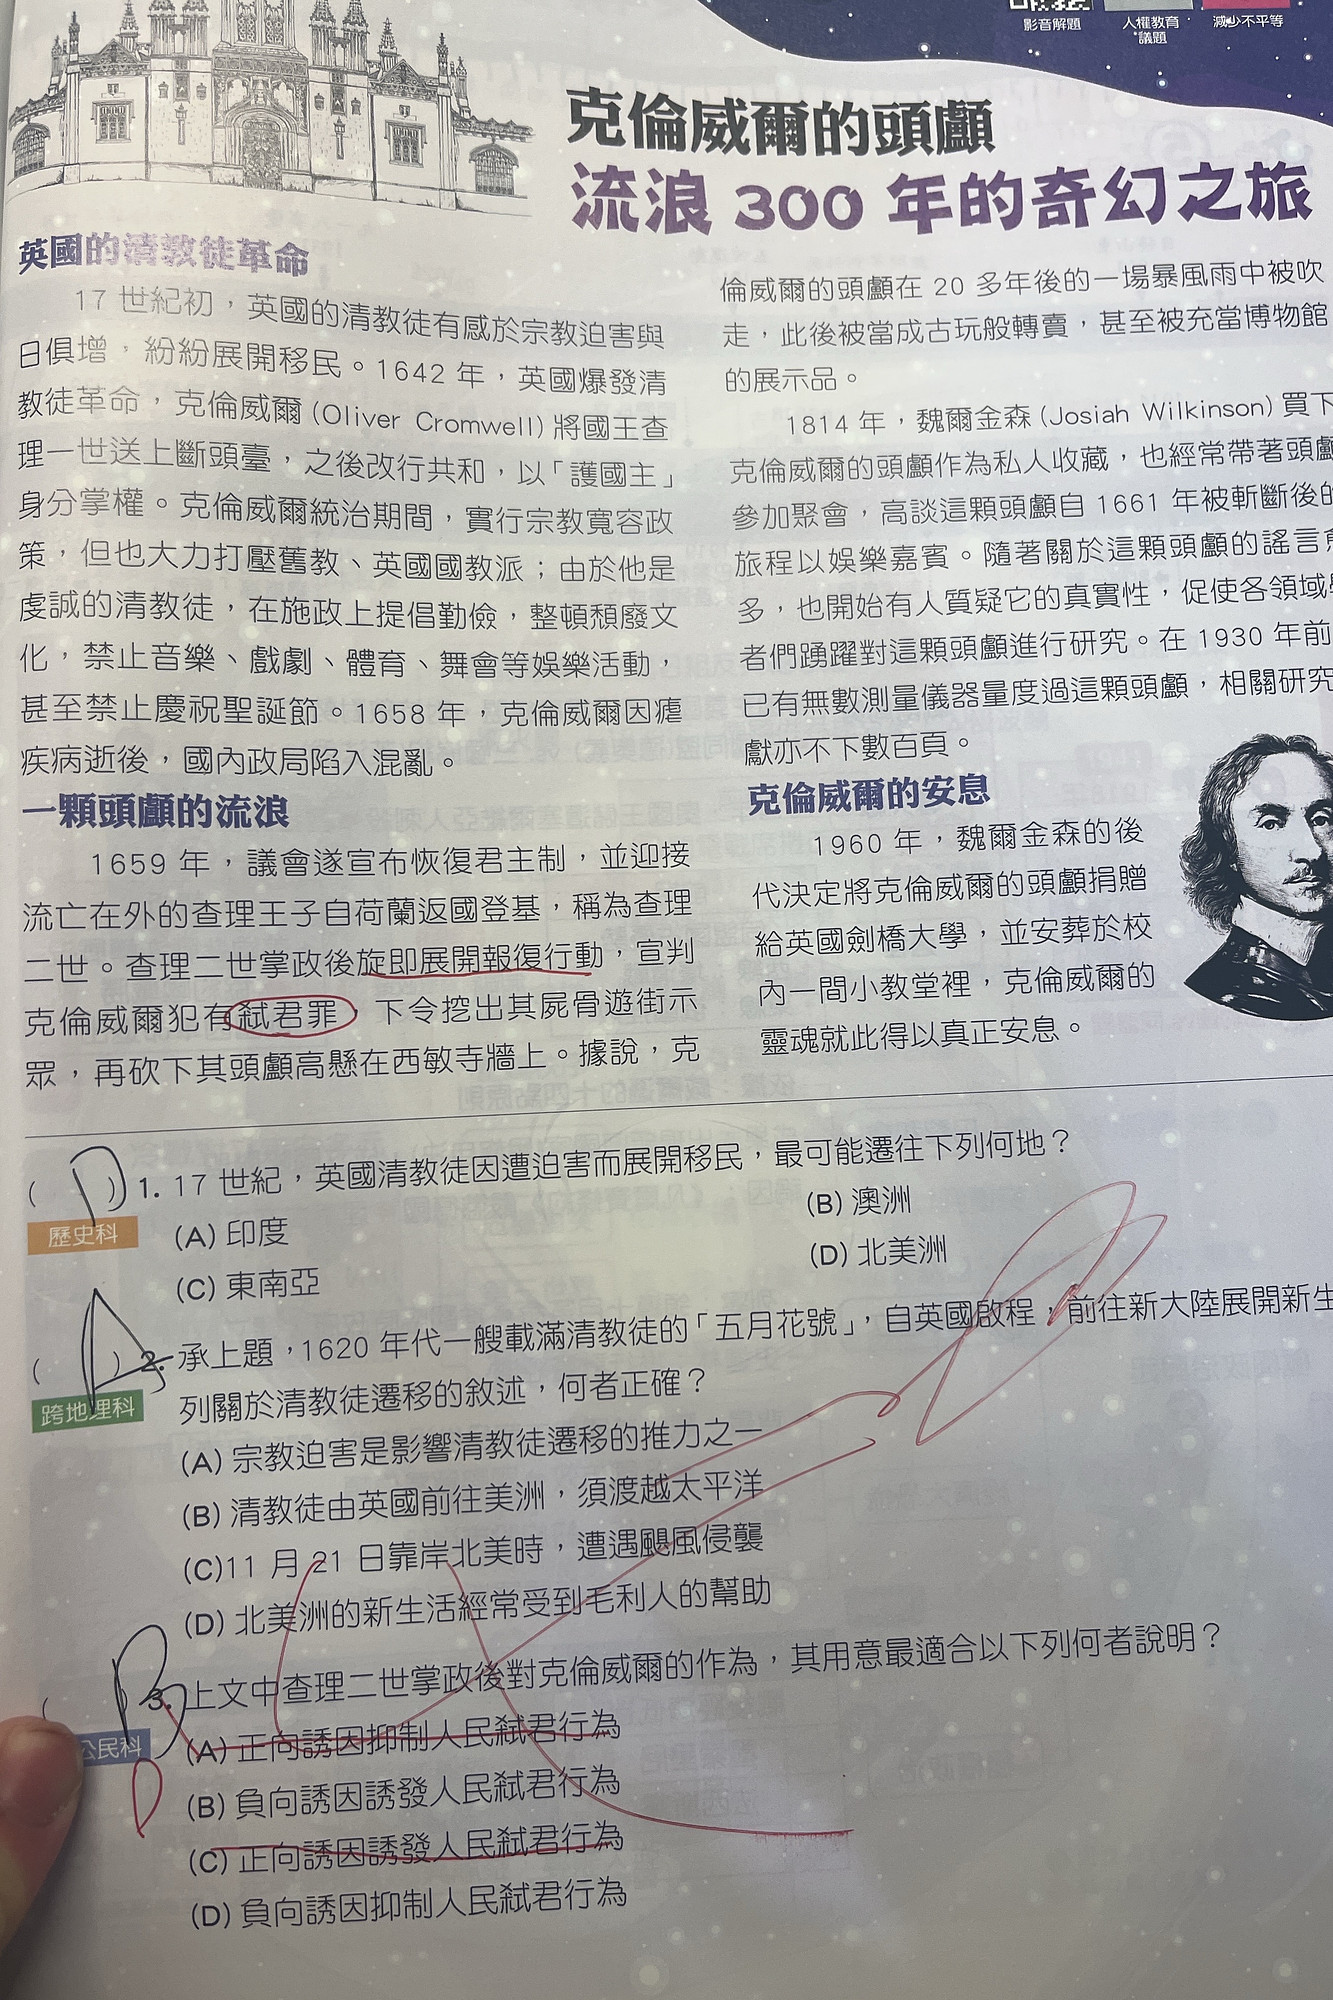 影音解題
人權教育
議題
減少不平等
克倫威爾的頭顱
流浪 300 年的奇幻之旅
英國的清教徒革命
17 世紀初，英國的清教徒有感於宗教迫害與
日俱增，紛紛展開移民。1642 年，英國爆發清
教徒革命，克倫威爾 (Oliver Cromwell) 將國王查
理一世送上斷頭臺，之後改行共和，以「護國主」
身分掌權。克倫威爾統治期間，實行宗教寬容政
策，但也大力打壓舊教、英國國教派；由於他是
虔誠的清教徒，在施政上提倡勤儉，整頓頹廢文
化，禁止音樂、戲劇、體育、舞會等娛樂活動，
甚至禁止慶祝聖誕節。1658 年，克倫威爾因瘧
疾病逝後，國內政局陷入混亂。
一顆頭顱的流浪
1659 年，議會遂宣布恢復君主制，並迎接
流亡在外的查理王子自荷蘭返國登基，稱為查理
二世。查理二世掌政後旋即展開報復行動，宣判
克倫威爾犯有弒君罪，下令挖出其屍骨遊街示
眾，再砍下其頭顱高懸在西敏寺牆上。據說，克
倫威爾的頭顱在 20 多年後的一場暴風雨中被吹
走，此後被當成古玩般轉賣，甚至被充當博物館
的展示品。
1814 年，魏爾金森 (Josiah Wilkinson) 買下
克倫威爾的頭顱作為私人收藏，也經常帶著頭顱
參加聚會，高談這顆頭顱自 1661 年被斬斷後的
旅程以娛樂嘉賓。隨著關於這顆頭顱的謠言愈
多，也開始有人質疑它的真實性，促使各領域學
者們踴躍對這顆頭顱進行研究。在 1930 年前
已有無數測量儀器量度過這顆頭顱，相關研究
獻亦不下數百頁。
克倫威爾的安息
1960 年，魏爾金森的後
代決定將克倫威爾的頭顱捐贈
給英國劍橋大學，並安葬於校
內一間小教堂裡，克倫威爾的
靈魂就此得以真正安息。
( D ) 1. 17 世紀，英國清教徒因遭迫害而展開移民，最可能遷往下列何地？
歷史科
(A) 印度
(B) 澳洲
(C) 東南亞
(D) 北美洲
( A ) 2. 承上題，1620 年代一艘載滿清教徒的「五月花號」，自英國啟程，前往新大陸展開新生
跨地理科
列關於清教徒遷移的敘述，何者正確？
(A) 宗教迫害是影響清教徒遷移的推力之一
(B) 清教徒由英國前往美洲，須渡越太平洋
(C)11 月 21 日靠岸北美時，遭遇颶風侵襲
(D) 北美洲的新生活經常受到毛利人的幫助
( B 3. 上文中查理二世掌政後對克倫威爾的作為，其用意最適合以下列何者說明？
公民科
D
(A) 正向誘因抑制人民弒君行為
(B) 負向誘因誘發人民弒君行為
(C) 正向誘因誘發人民弒君行為
(D) 負向誘因抑制人民弒君行為